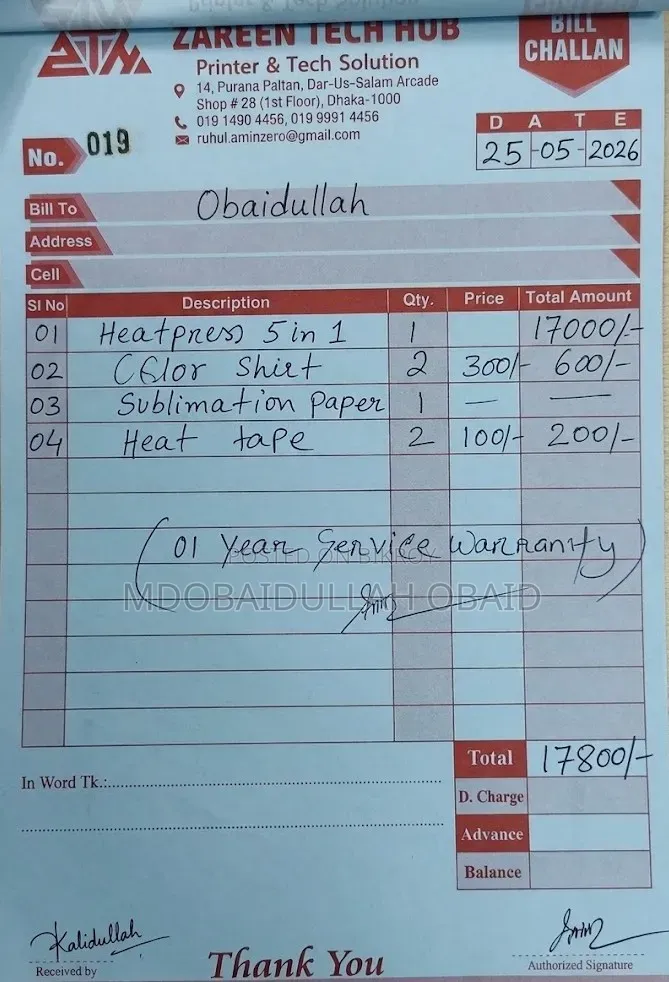 ZAREEN TECH HUB
BILL
CHALLAN
ATM
Printer & Tech Solution
14, Purana Paltan, Dar-Us-Salam Arcade
Shop # 28 (1st Floor), Dhaka-1000
019 1490 4456, 019 9991 4456
ruhul.aminzero@gmail.com
No. 019
DATE
25-05-2026
Bill To Obaidullah
Address
Cell
Sl No Description Qty. Price Total Amount
01 Heatpress 5 in 1 1 17000/-
02 Color Shirt 2 300/- 600/-
03 Sublimation Paper 1 — —
04 Heat tape 2 100/- 200/-
(01 Year Service Warranity)
POSTED ON BIKROY
MDOBAIDULLAH OBAID
Total 17800/-
In Word Tk.:
D. Charge
Advance
Balance
Kalidullah
Received by
Thank You
Authorized Signature